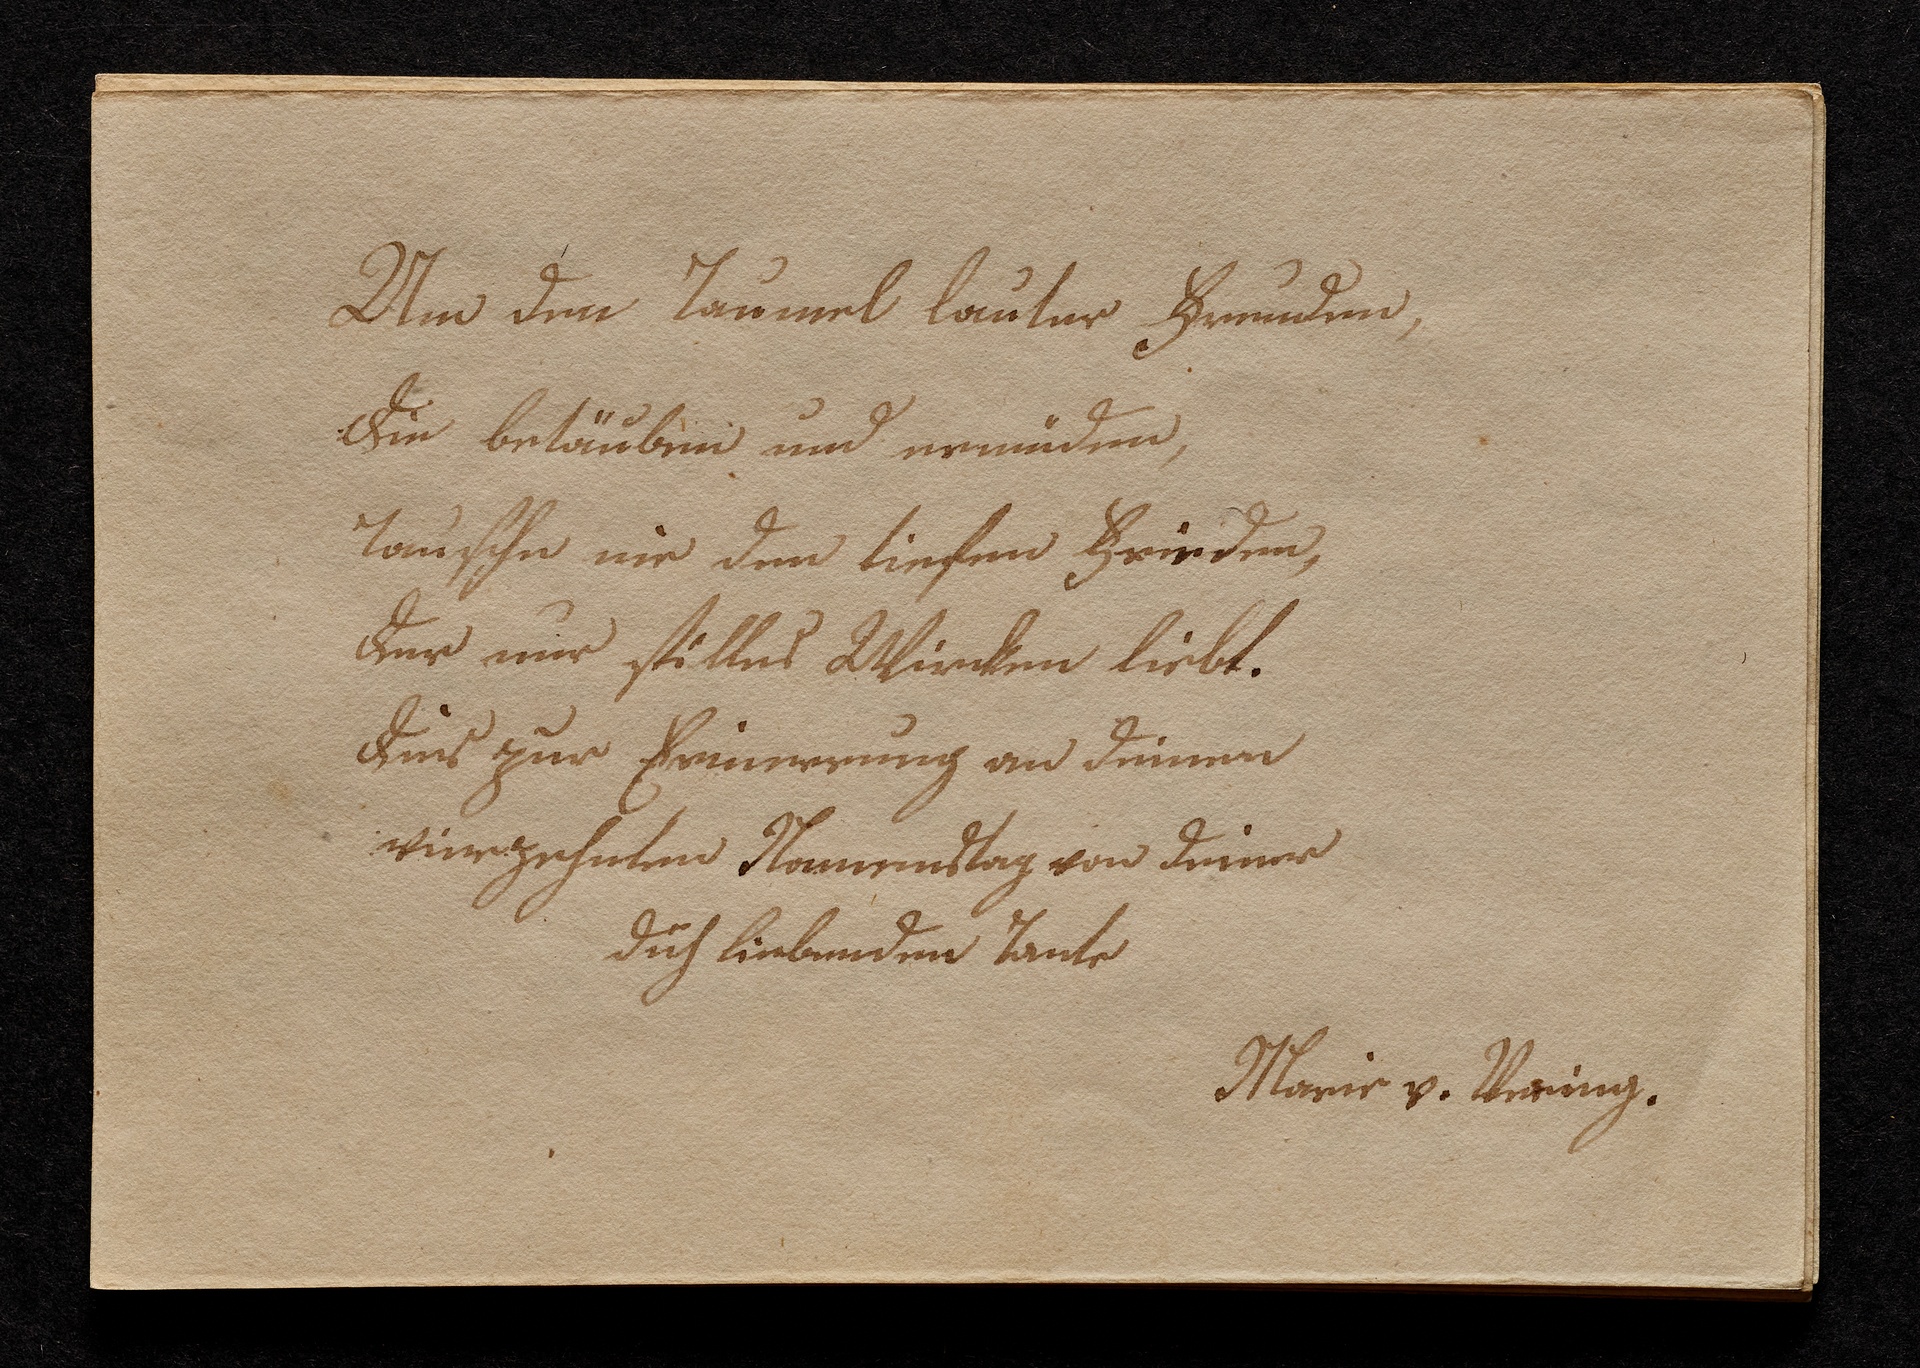 Um den Taumel lauter Freuden,
Die betäuben und ermüden,
Tausche nie den tiefen Frieden,
Der nur stilles Wircken liebt.
Dies zur Erinnerung an deinen
vierzehnten Namenstag von deiner
dich liebenden Tante
Marie v. Vering.